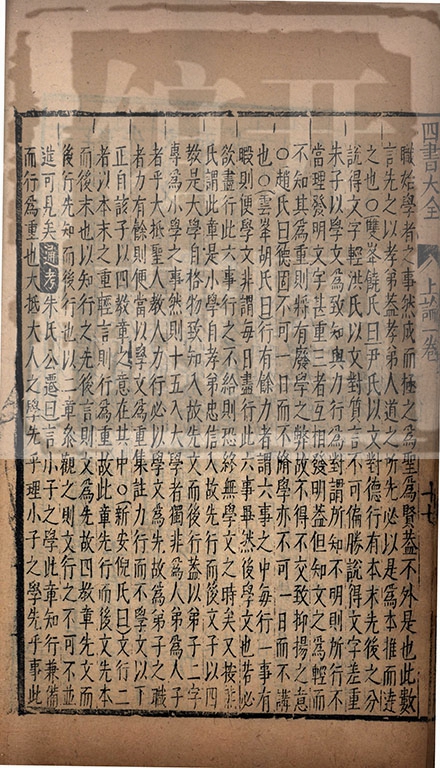 四書大全 上論一卷 十七
職始學者之事然成而極之爲聖爲賢蓋不外是也此數
言先之以孝弟蓋孝弟人道之所先必以是爲本推而達
之也○雙峯饒氏曰尹氏以文對德行有本末先後之分
說得文字輕洪氏以文對質言不可偏勝說得文字差重
朱子以學文爲致知與力行爲對謂所知不明則所行不
當理發明文字甚重三者互相發明蓋但知文之爲輕而
不知其爲重則將有廢學之弊故不得不交致抑揚之意
○趙氏曰德固不可一日而不脩學亦不可一日而不講
也○雲峯胡氏曰行有餘力者謂六事之中每行一事有
暇則便學文非謂每日盡行此六事畢然後學文也若必
欲盡行此六事行之不給則恐終無學文之時矣又按熊
氏謂此章是小學自孝弟忠信入故先行而後文子以四
教是大學自格物致知入故先文而後行蓋以弟子二字
專爲小學之事然則十五入大學者獨非爲人弟爲人子
者乎大抵聖人教人力行必以學文爲先故爲弟子之職
者力有餘則便當以學文爲重集註力行而不學文以下
正自該子以四教章之意在其中○新安倪氏曰文行二
者以本末之重輕言則行爲重故此章先行而後文先本
而後末也以知行之先後言則文爲先故四教章先文而
後行先知而後行也以二章叅觀之則文行之不可不並
進可見矣通考朱氏公遷曰言小子之學此章知行兼備
而行爲重也大抵大人之學先乎理小子之學先乎事此